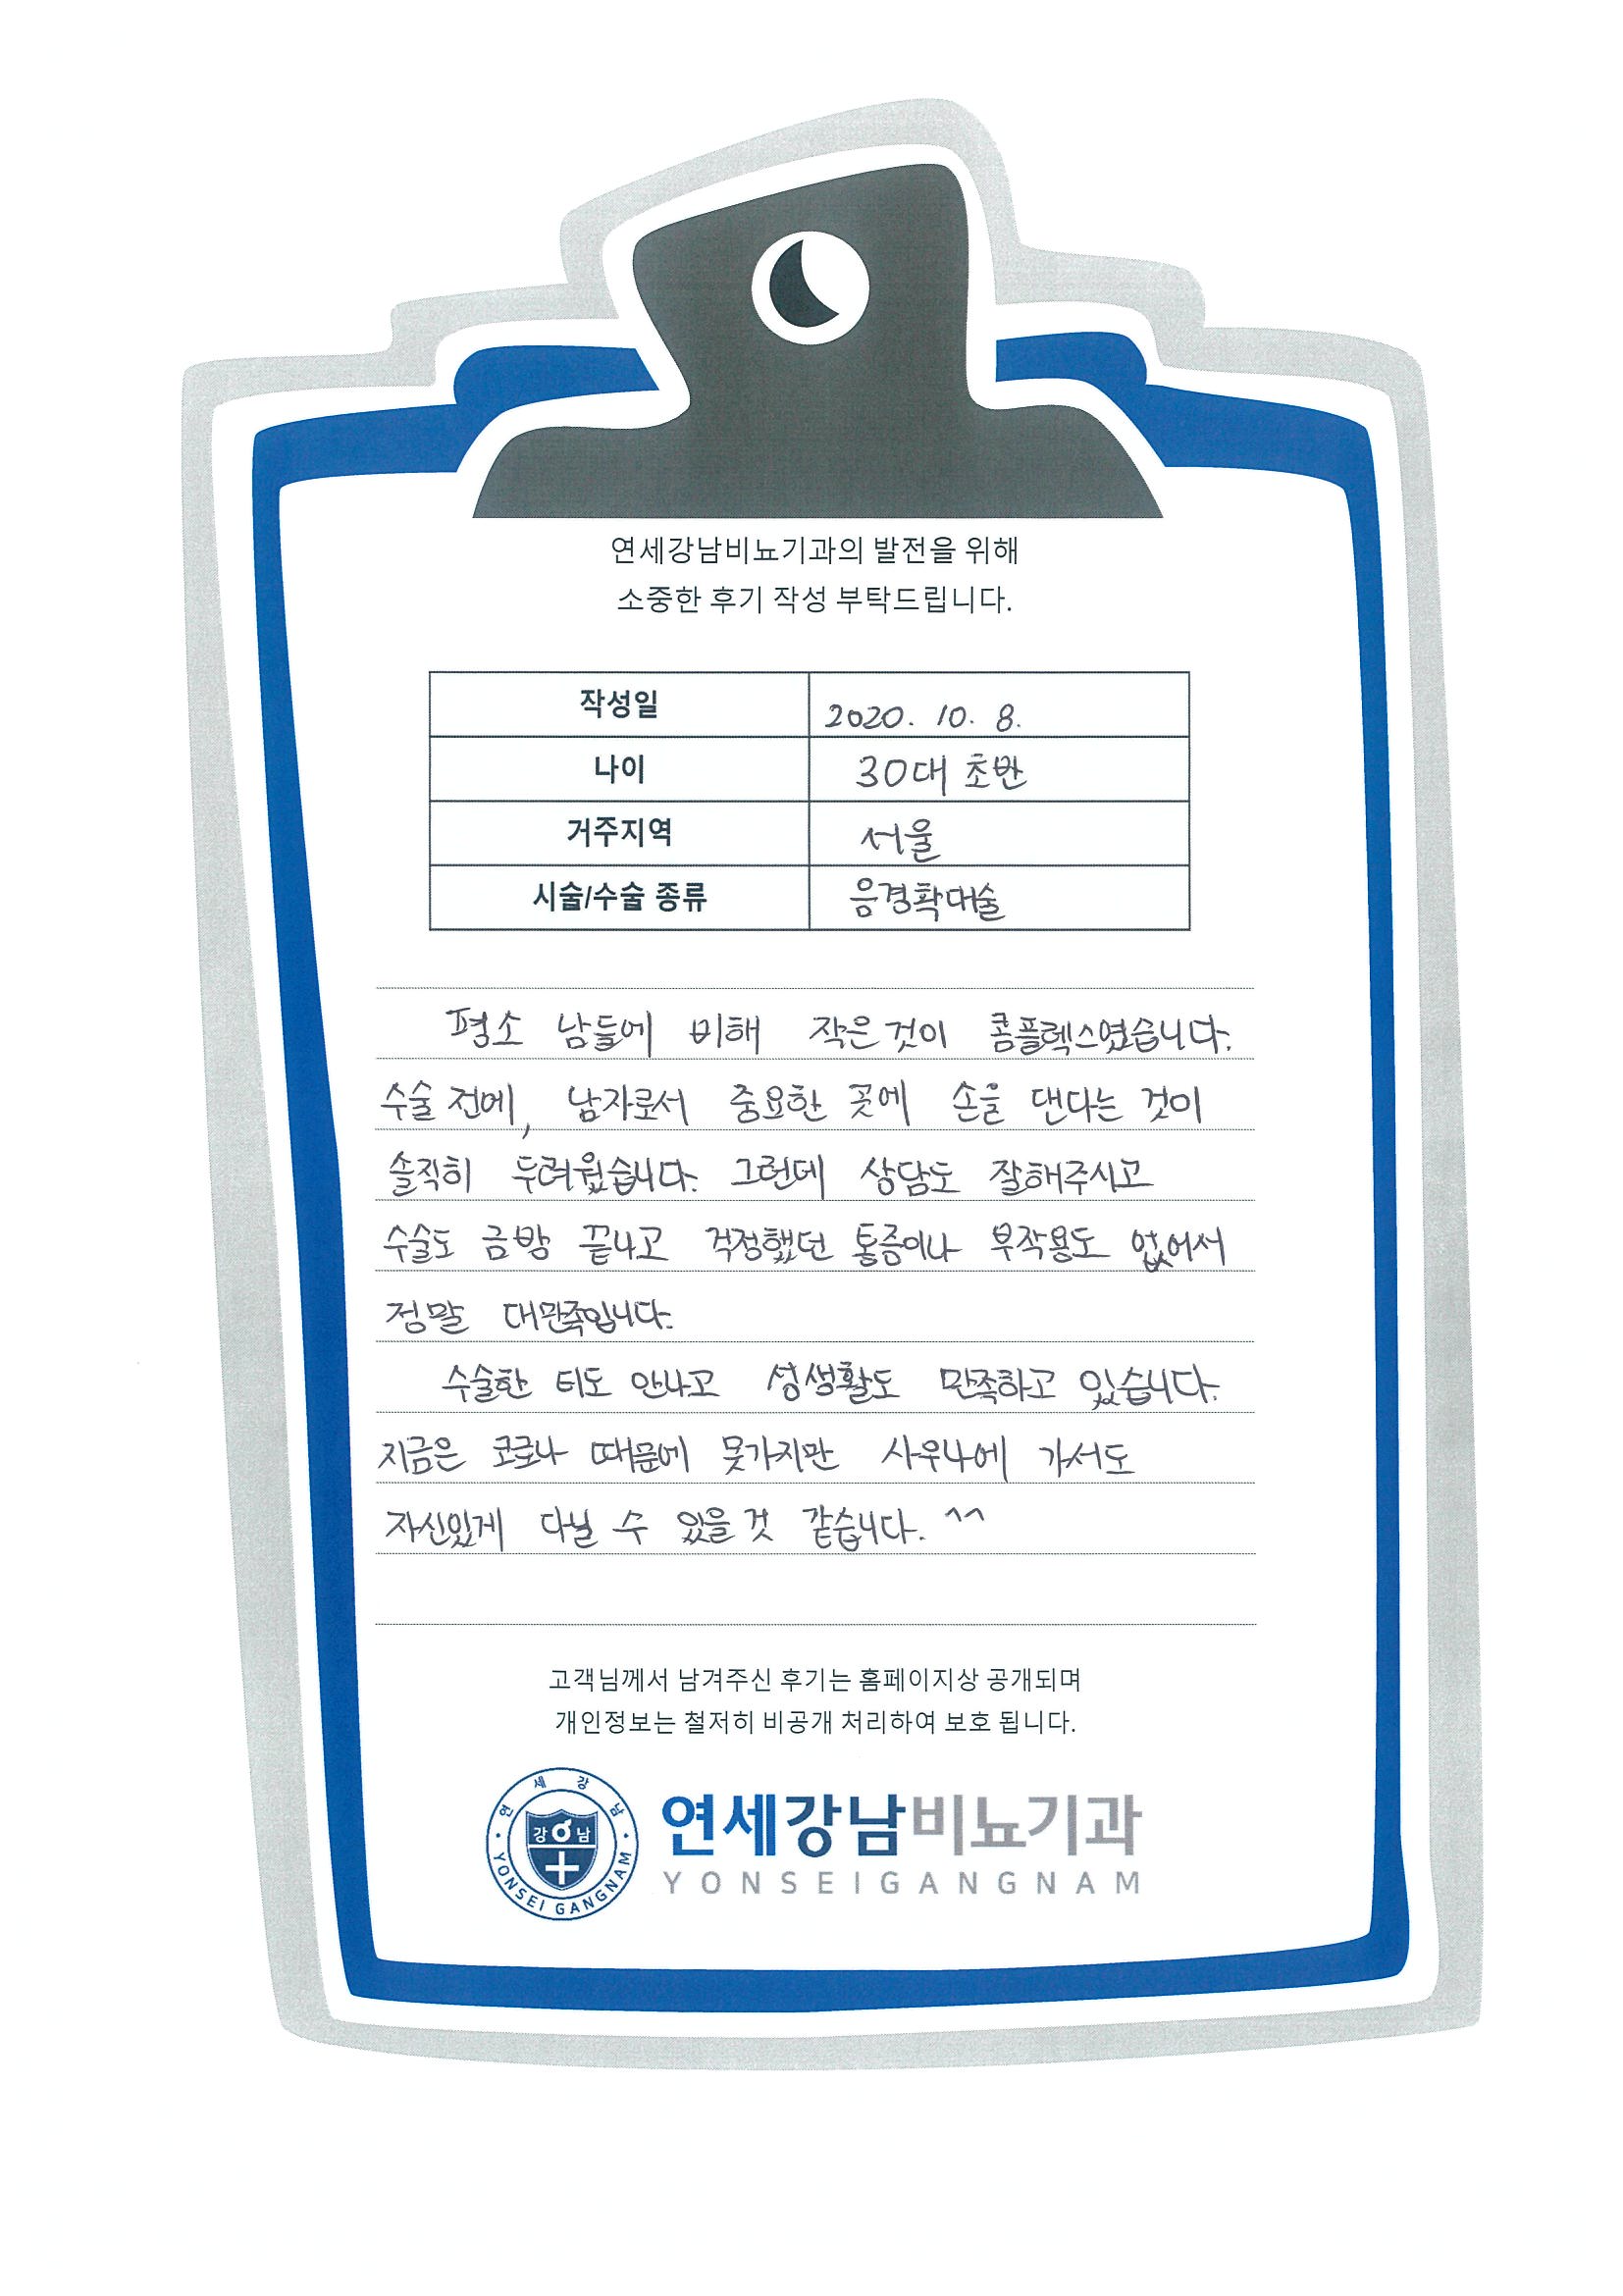 연세강남비뇨기과의 발전을 위해
소중한 후기 작성 부탁드립니다.
작성일 2020. 10. 8.
나이 30대 초반
거주지역 서울
시술/수술 종류 음경확대술
평소 남들에 비해 작은것이 콤플렉스였습니다.
수술 전에, 남자로서 중요한 곳에 손을 댄다는 것이
솔직히 두려웠습니다. 그런데 상담도 잘해주시고
수술도 금방 끝나고 걱정했던 통증이나 부작용도 없어서
정말 대만족입니다.
수술한 티도 안나고 성생활도 만족하고 있습니다.
지금은 코로나 때문에 못가지만 사우나에 가서도
자신있게 다닐 수 있을 것 같습니다. ^^
고객님께서 남겨주신 후기는 홈페이지상 공개되며
개인정보는 철저히 비공개 처리하여 보호 됩니다.
연세강남
강남
YONSEI GANGNAM
연세강남비뇨기과
YONSEIGANGNAM